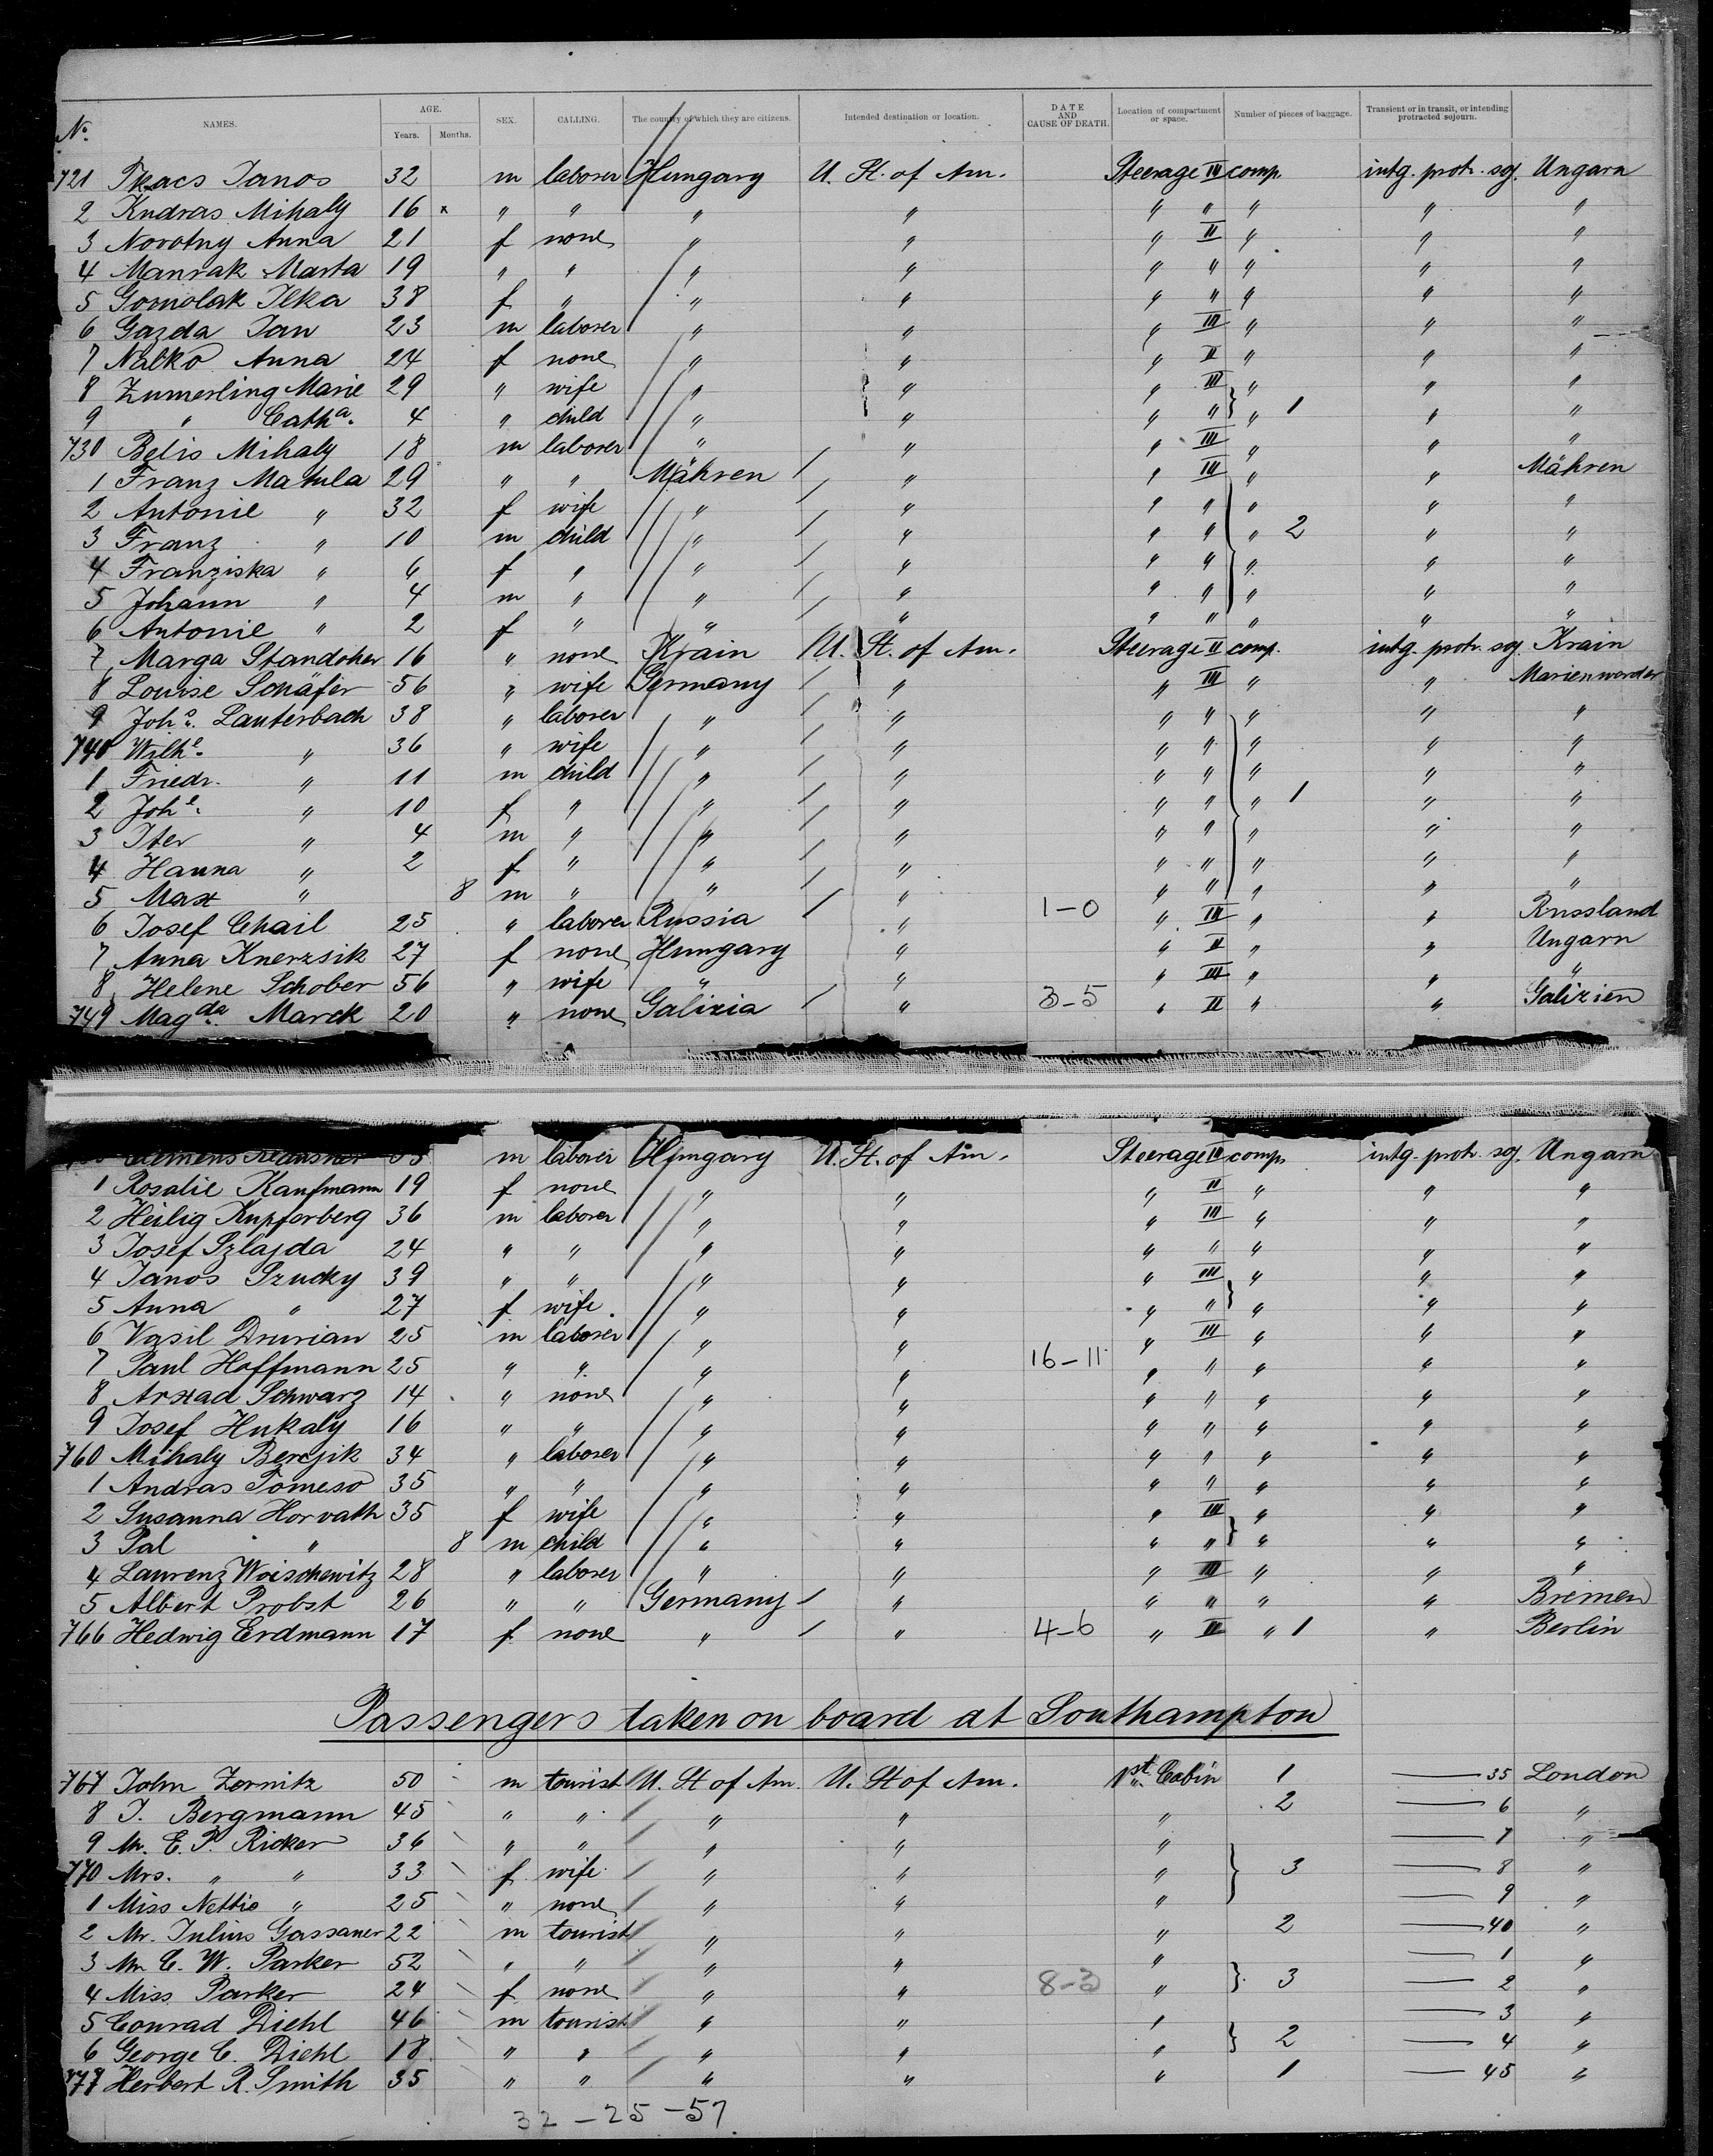 No. NAMES. AGE. Years. Months. SEX. CALLING. The country of which they are citizens. Intended destination or location. DATE AND CAUSE OF DEATH. Location of compartment or space. Number of pieces of baggage. Transient or in transit, or intending protracted sojourn.
721 Tkacs Janos 32 m laborer Hungary U. St. of Am. Steerage III comp. intg. protr. soj. Ungarn
2 Kudras Mihaly 16 x " " " " " " " " "
3 Novotny Anna 21 f none " " " II " " "
4 Manrak Marta 19 " " " " " " " " "
5 Gornolak Ilka 38 f " " " " " " " "
6 Gazda Jan 23 m laborer " " " III " " "
7 Nalko Anna 24 f none " " " II " " "
8 Zumerling Marie 29 " wife " " " III " " "
9 " Catha. 4 " child " " " " " 1 " "
730 Belis Mihaly 18 m laborer " " " III " " "
1 Franz Matula 29 " " Mähren " " III " " Mähren
2 Antonie " 32 f wife " " " " " " "
3 Franz " 10 m child " " " " " 2 " "
4 Franziska " 6 f " " " " " " " "
5 Johann " 4 m " " " " " " " "
6 Antonie " 2 f " " " " " " " "
7 Marga Standoher 16 " none Krain U. St. of Am. Steerage II comp. intg. protr. soj. Krain
8 Louise Schäfer 56 " wife Germany " " III " " Marienwerder
9 Johs. Lauterbach 38 " laborer " " " " " " "
740 Wilhe. " 36 " wife " " " " " " "
1 Friedr. " 11 m child " " " " " " "
2 Johe. " 10 f " " " " " " 1 " "
3 Iter " 4 m " " " " " " " "
4 Hanna " 2 f " " " " " " " "
5 Max " 8 m " " " " " " " "
6 Josef Chail 25 " laborer Russia " 1-0 " III " " Russland
7 Anna Knerzsik 27 f none Hungary " " II " " Ungarn
8 Helene Schober 56 " wife " " " III " " "
749 Magda. Marck 20 " none Galizia " 3-5 " II " " Galizien
Clemens Klausner m laborer Hungary U. St. of Am. Steerage III comp. intg. protr. soj. Ungarn
1 Rosalie Kaufmann 19 f none " " " II " " "
2 Heilig Kupferberg 36 m laborer " " " III " " "
3 Josef Szlajda 24 " " " " " " " " "
4 Janos Szucky 39 " " " " " III " " "
5 Anna " 27 f wife " " " " " " "
6 Vasil Drurian 25 m laborer " " " III " " "
7 Paul Hoffmann 25 " " " " 16-11 " " " " "
8 Arxad Schwarz 14 " none " " " " " " "
9 Josef Hukaly 16 " " " " " " " " "
760 Mihaly Bercjik 34 " laborer " " " " " " "
1 Andras Tomeso 35 " " " " " " " " "
2 Susanna Horvath 35 f wife " " " III " " "
3 Pal " 8 m child " " " " " " "
4 Laurenz Woischewitz 28 " laborer " " " III " " "
5 Albert Probst 26 " " Germany " " " " " Bremen
766 Hedwig Erdmann 17 f none " " 4-6 " II " 1 " Berlin
Passengers taken on board at Southampton
767 John Zernitz 50 m tourist U. St of Am. U. St of Am. 1st. Cabin 1 35 London
8 J. Bergmann 45 " " " " " 2 6 "
9 Mr. E. P. Ricker 36 " " " " " 7 "
770 Mrs. " " 33 f wife " " " 3 8 "
1 Miss Nettie " 25 " none " " " 9 "
2 Mr. Julius Gassauer 22 m tourist " " " 2 40 "
3 Mr C. W. Parker 52 " " " " " 1 "
4 Miss Parker 24 f none " " 8-3 " 3 2 "
5 Conrad Diehl 46 m tourist " " " 3 "
6 George C. Diehl 18 " " " " " 2 4 "
777 Herbert R. Smith 35 " " " " " 1 45 "
32 - 25 - 57